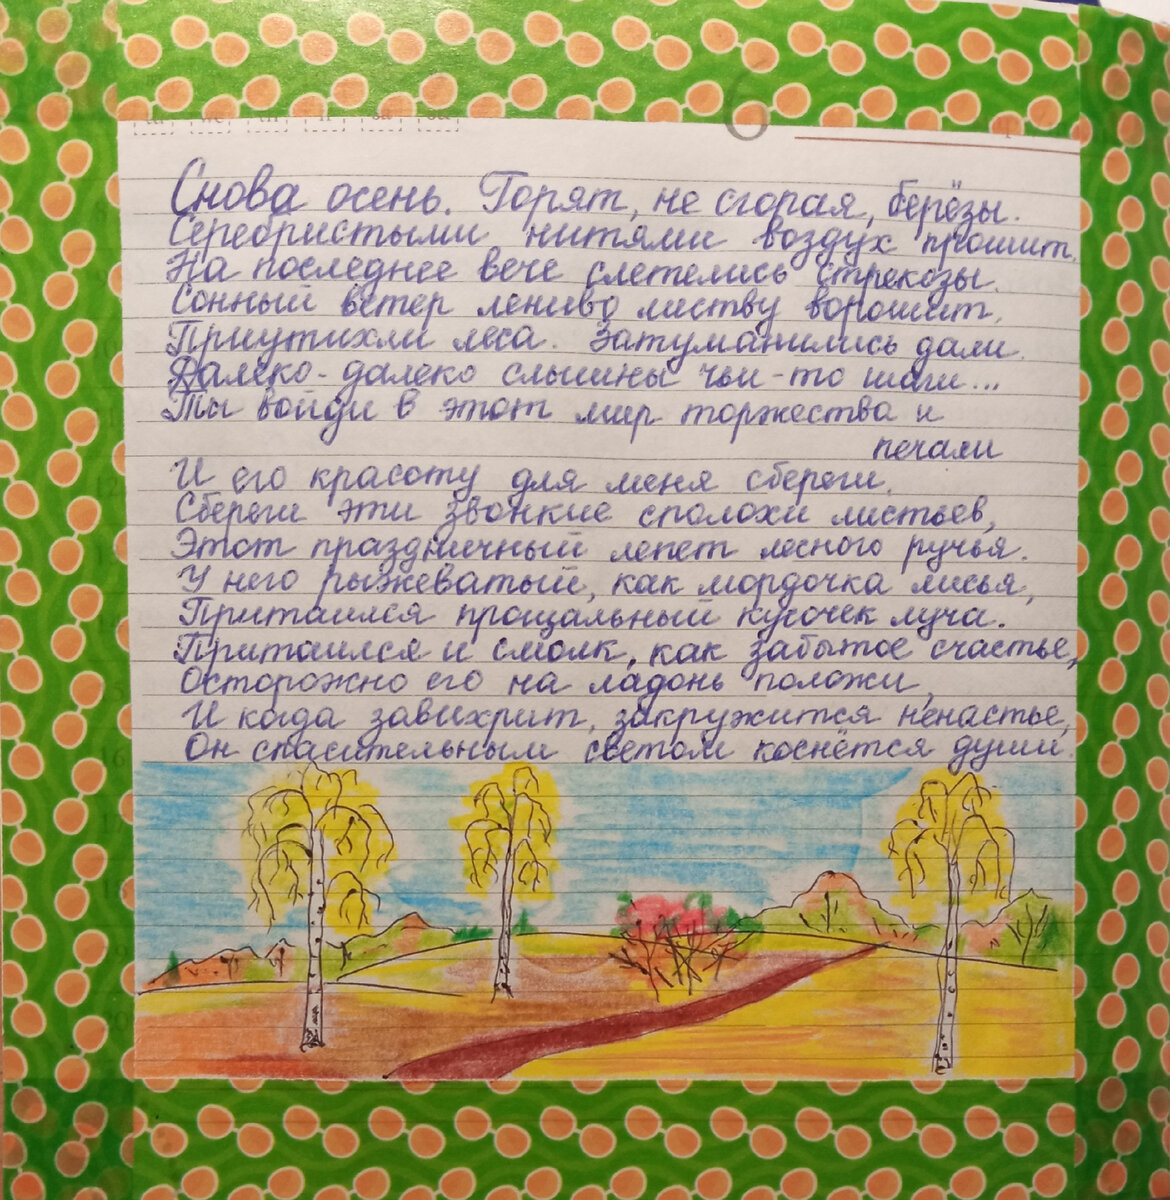 6
Снова осень. Горят, не сгорая, берёзы.
Серебристыми нитями воздух прошит.
На последнее вече слетелись стрекозы.
Сонный ветер лениво листву ворошит.
Приутихли леса. Затуманились дали.
Далеко-далеко слышны чьи-то шаги...
Ты войди в этот мир торжества и
печали
И его красоту для меня сбереги.
Сбереги эти звонкие сполохи листьев,
Этот праздничный лепет лесного ручья.
У него рыжеватый, как мордочка лисья,
Притаился прощальный кусочек луча.
Притаился и смолк, как забытое счастье,
Осторожно его на ладонь положи,
И когда завихрит, закружится ненастье,
Он спасительным светом коснётся души.